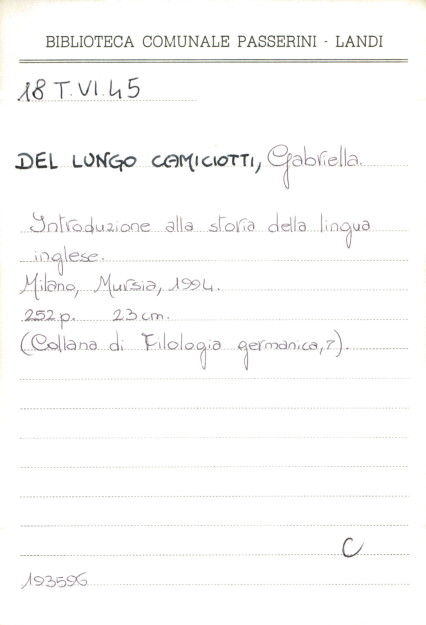 BIBLIOTECA COMUNALE PASSERINI - LANDI
18 T.VI.45
DEL LUNGO CAMICIOTTI, Gabriella.
Introduzione alla storia della lingua
inglese.
Milano, Mursia, 1994.
252 p. 23 cm.
(Collana di Filologia germanica, 7).
C
193596